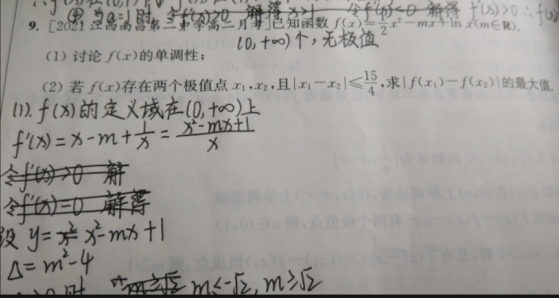 ② 当a=1时, 令f'(x)>0 解得 x>1 令f'(x)<0 解得
9. [2021 高二月考]已知函数 f(x)=1/2x²-mx+ln x(m∈R).
(0,+∞)个,无极值
(1) 讨论 f(x)的单调性;
(2) 若 f(x)存在两个极值点 x₁,x₂,且|x₁-x₂|≤15/4,求|f(x₁)-f(x₂)|的最大值.
(1). f(x)的定义域在(0,+∞)上
f'(x)=x-m+1/x=x²-mx+1/x
令f'(x)>0 解
令f'(x)=0 解得
设 y=x²-mx+1
Δ=m²-4
时 m≤-√2, m≥√2